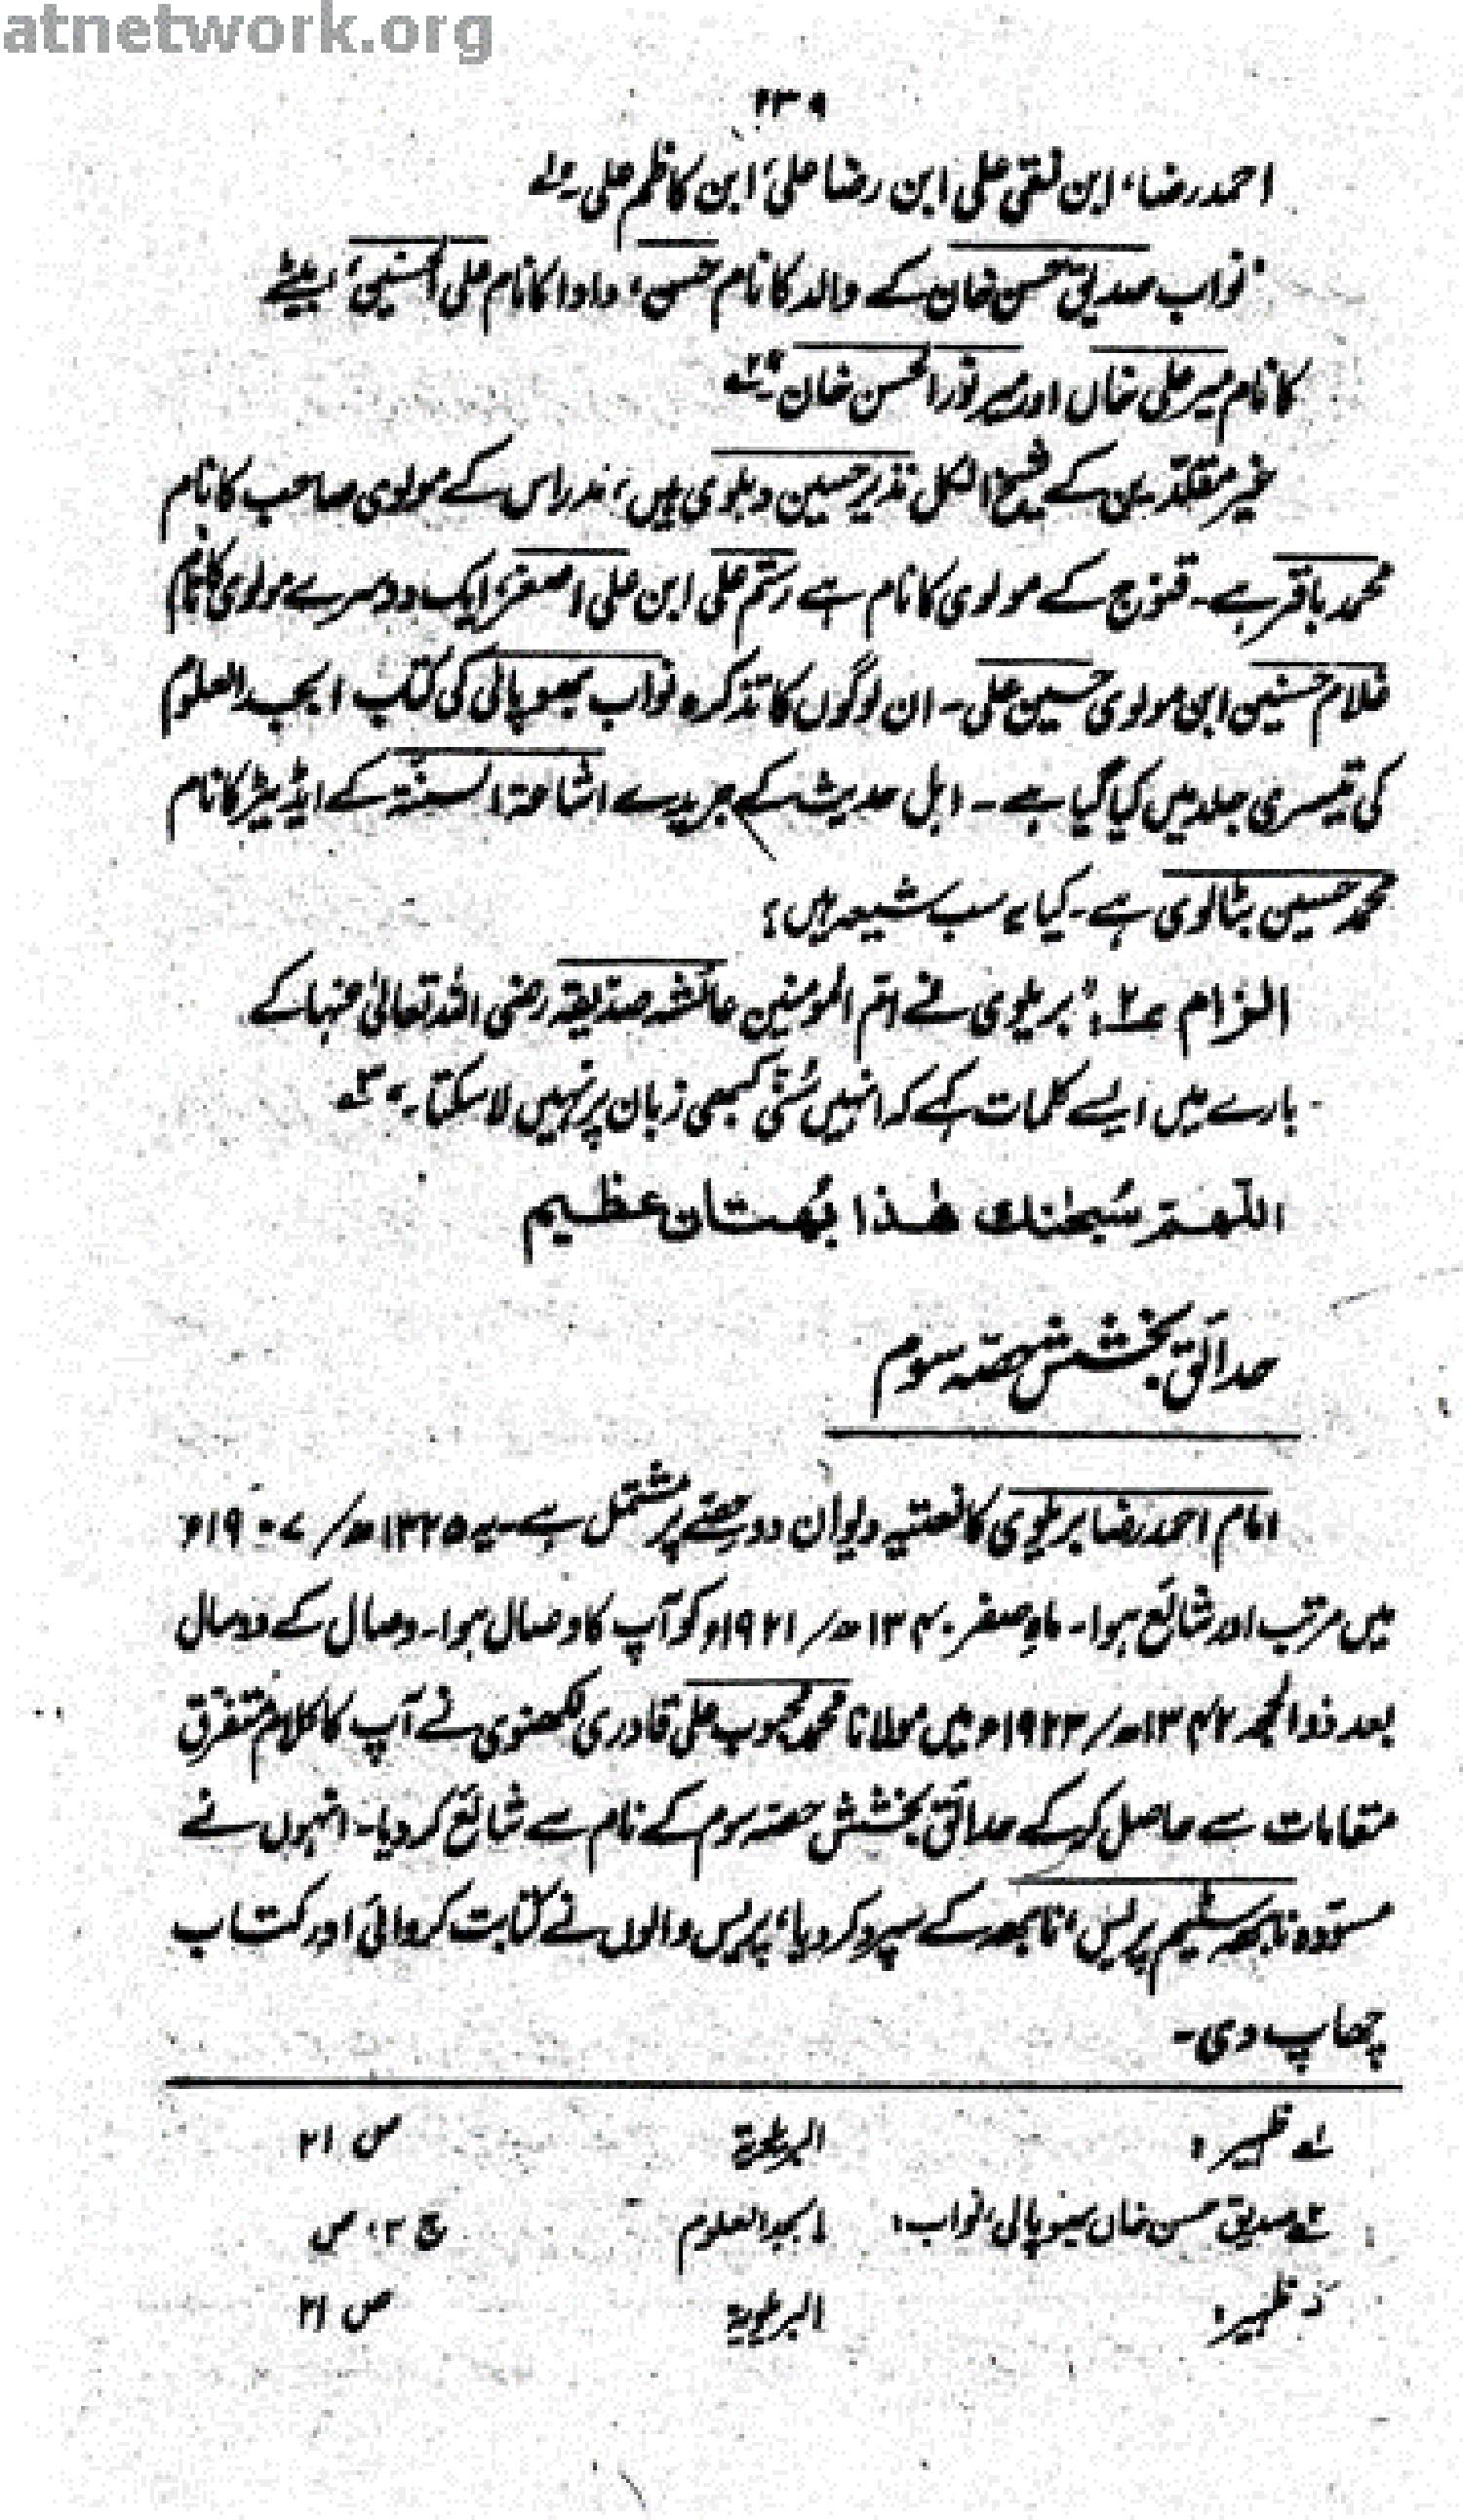 atnetwork.org
۲۳۹
احمد رضا، ابن نقی علی ابن رضا علی، ابن کاظم علی۔ ۱ے
نواب صدیق حسن خان کے والد کا نام حسن، دادا کا نام علی الحسینی، بیٹے
کا نام میر علی خاں اور میر نور الحسن خان۔ ۲ے
غیر مقلدین کے شیخ الکل نذیر حسین دہلوی ہیں، مدراس کے مولوی صاحب کا نام
محمد باقر ہے۔ قنوج کے مولوی کا نام ہے رستم علی ابن علی اصغر، ایک دوسرے مولوی کا نام
غلام حسنین ابن مولوی حسین علی۔ ان لوگوں کا تذکرہ نواب بھوپالی کی کتاب ابجد العلوم
کی تیسری جلد میں کیا گیا ہے۔ اہل حدیث کے جریدے اشاعۃ السنۃ کے ایڈیٹر کا نام
محمد حسین بٹالوی ہے۔ کیا یہ سب شیعہ ہیں؟
الزام ۲: "بریلوی نے ام المؤمنین عائشہ صدیقہ رضی اللہ تعالیٰ عنہا کے
بارے میں ایسے کلمات کہے کہ انہیں سُنّی کبھی زبان پر نہیں لا سکتا۔" ۳ے
اللّٰھم سُبحٰنك ھٰذا بُھتان عظیم
حدائق بخشش حصہ سوم
امام احمد رضا بریلوی کا نعتیہ دیوان دو حصّے پر مشتمل ہے۔ یہ ۱۳۲۵ھ/ ۱۹۰۷ء
میں مرتب اور شائع ہوا۔ ماہِ صفر ۱۳۴۰ھ/ ۱۹۲۱ء کو آپ کا وصال ہوا۔ وصال کے دو سال
بعد ذوالحجہ ۱۳۴۲ھ/ ۱۹۲۳ء میں مولانا محمد محبوب علی قادری لکھنوی نے آپ کا کلام متفرق
مقامات سے حاصل کر کے حدائق بخشش حصہ سوم کے نام سے شائع کر دیا۔ انہوں نے
مسوّدہ نابھہ سٹیم پریس، نابھہ کے سپرد کر دیا، پریس والوں نے کتابت کروائی اور کتاب
چھاپ دی۔
۱ے ظہیر: البریلویۃ ص ۲۱
۲ے صدیق حسن خاں بھوپالی، نواب: ابجد العلوم ج ۳، ص
ظہیر: البریلویۃ ص ۲۱